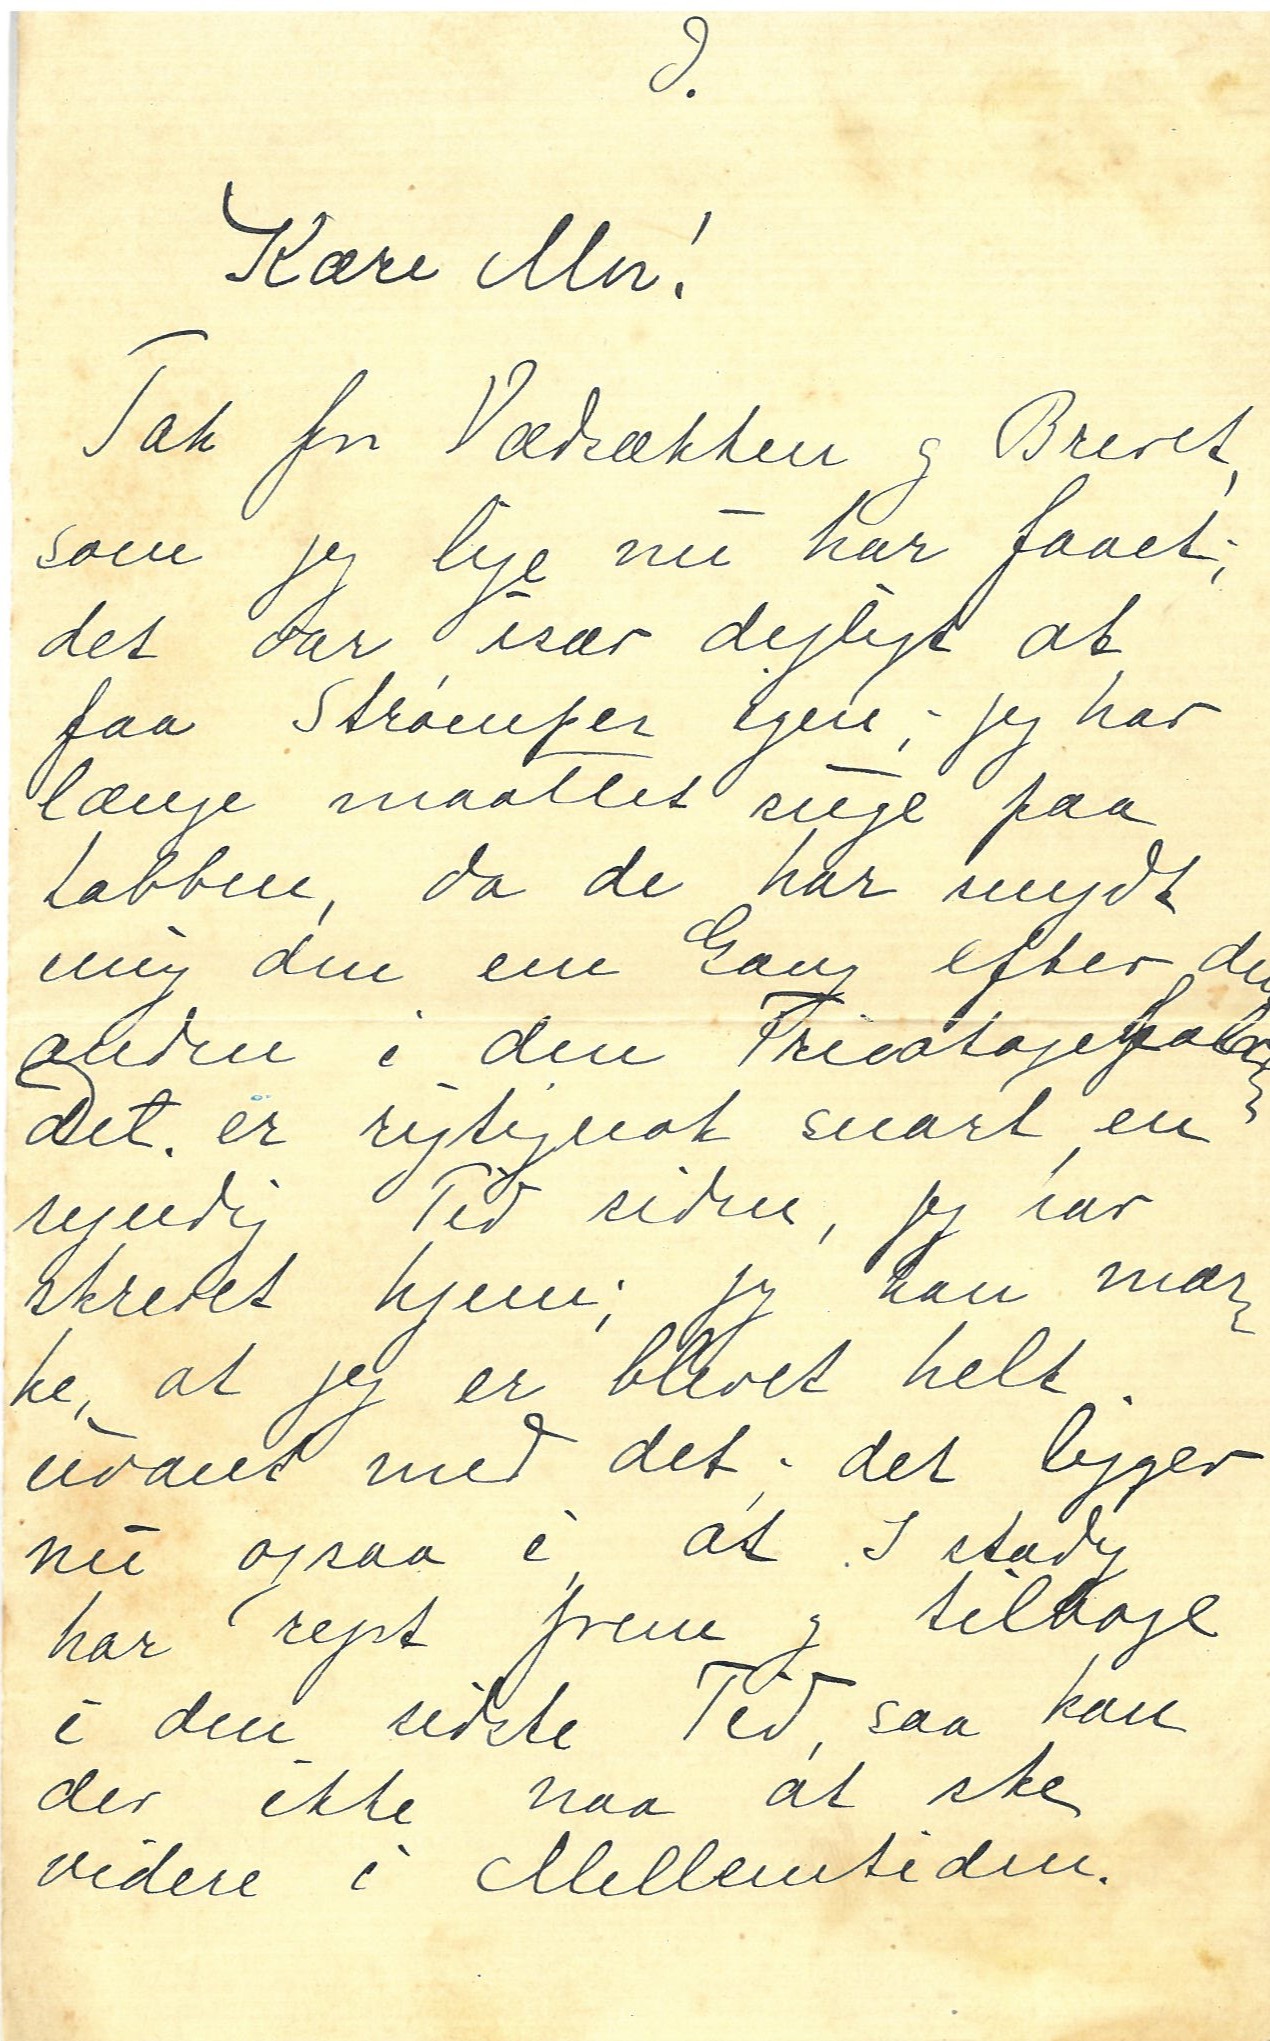 D.
Kære Mor!
Tak for Vadsækken og Brevet,
som jeg lige nu har faaet;
det var især dejligt at
faa Strømper igen; jeg har
længe maattet suge paa
Labben, da de har snydt
mig den ene Gang efter den
anden i den Tricotage
Det er rigtignok snart en
syndig Tid siden, jeg har
skrevet hjem; jeg kan mær-
ke, at jeg er blevet helt
uvant med det; det ligger
nu ogsaa i, at I stadig
har rejst frem og tilbage
i den sidste Tid, saa kan
der ikke naa at ske
videre i Mellemtiden.